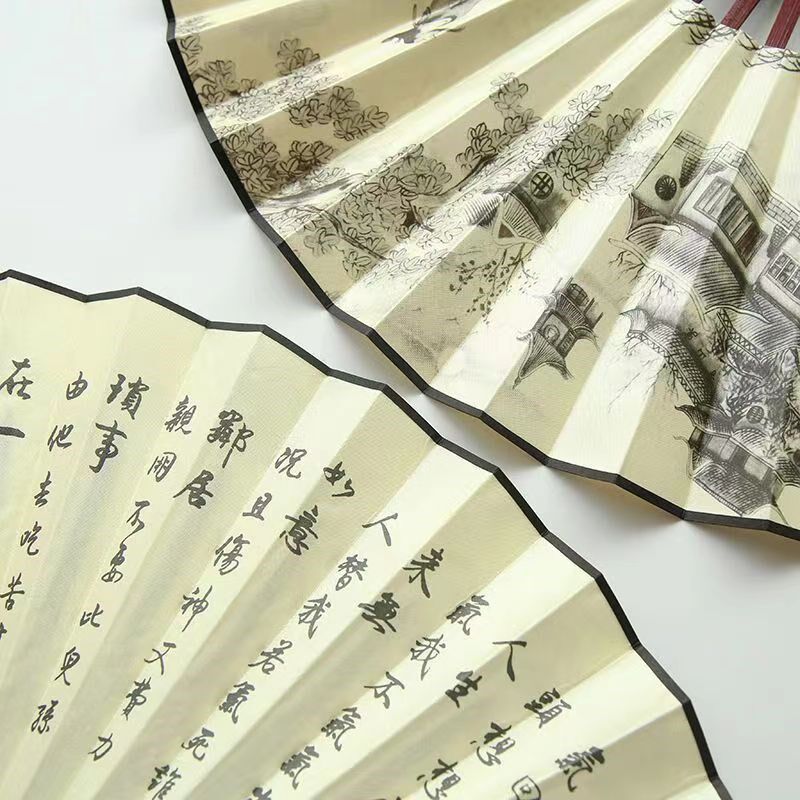 氣
回
頭想想
人生
氣我不氣氣
來無
人替我若氣死誰
如意
況且傷神又費力
鄰居
親朋不要比兒孫
瑣事
由他去吃苦
在一